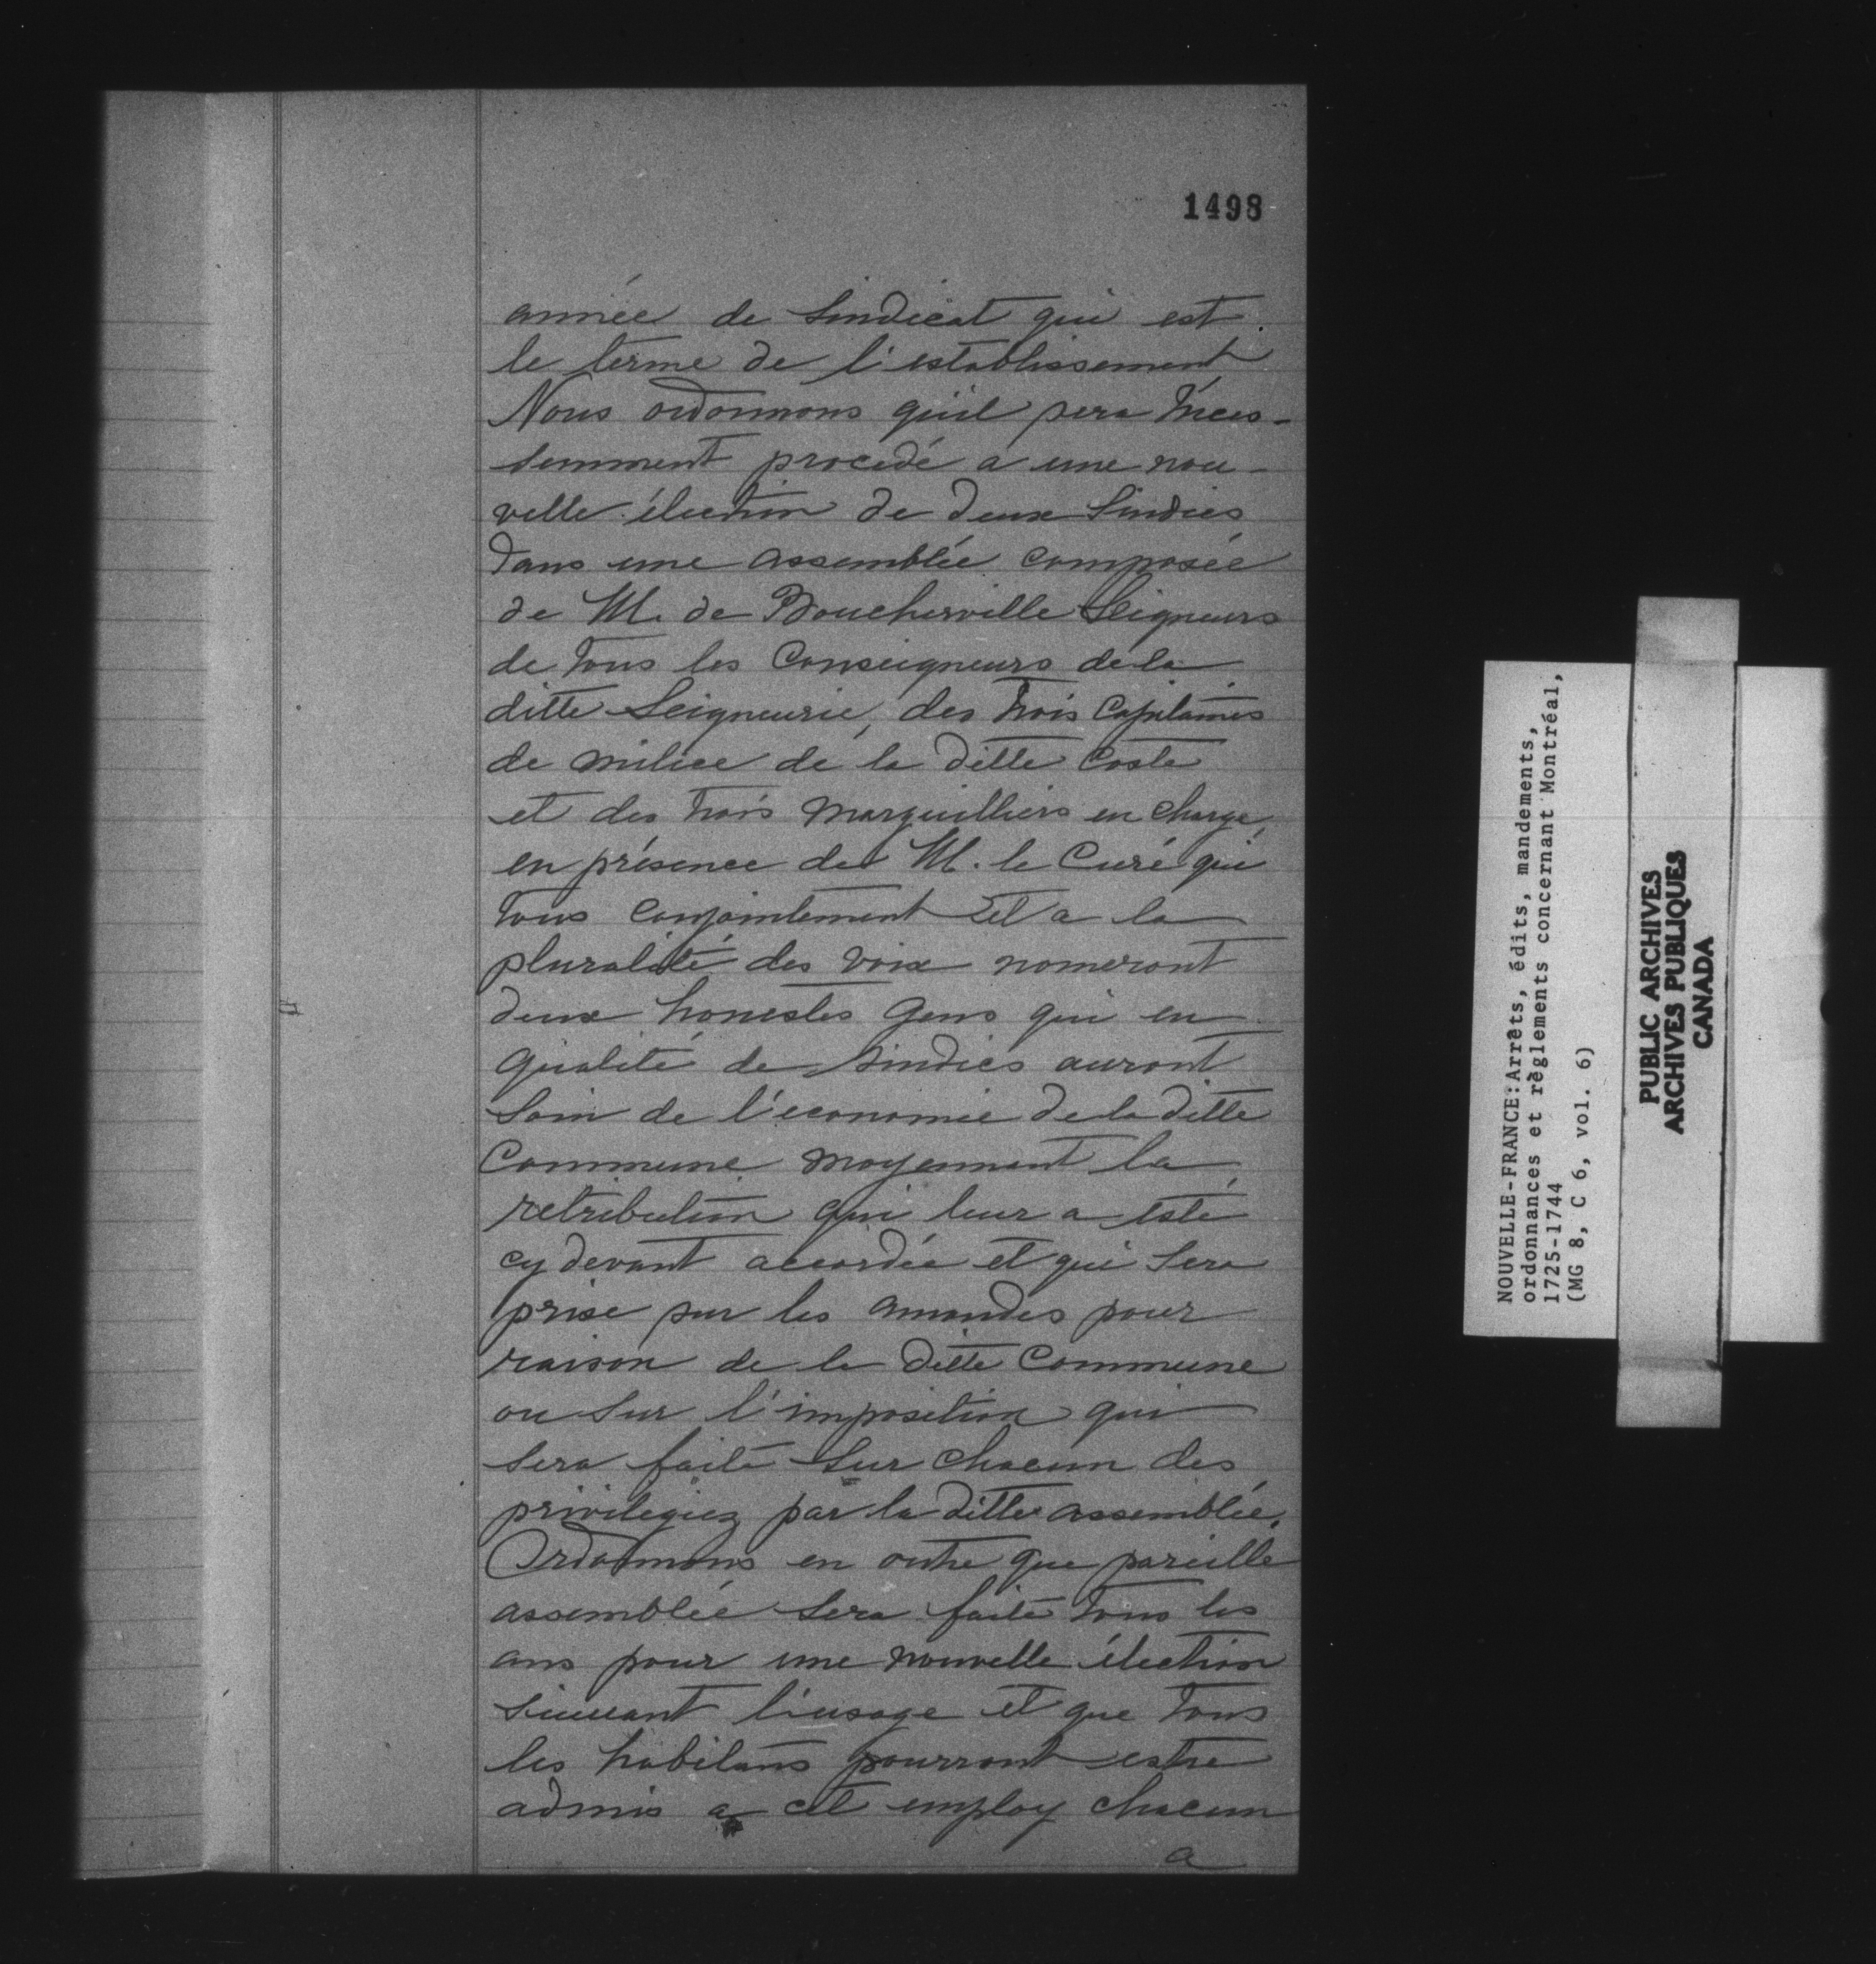 1498
année de Sindicat qui est
le terme de l'establissement
Nous ordonnons quil sera Inces-
samment procedé a une nou-
velle élection de deux Sindics
dans une assemblée composée
de M. de Boucherville Seigneurs
de tous les Conseigneurs de la
ditte Seigneurie, des trois Capitaines
de milice de la ditte Coste
et des trois marguilliers en charge,
en présence de M. le Curé qui
tous conjointement et a la
pluralité des voix nomeront
deux honestes Gens qui en
qualité de sindics auront
soin de l'économie de la ditte
Commune moyennant la
retribution qui leur a esté
cy devant accordée et qui Sera
prise sur les amandes pour
raison de la ditte Commune
ou sur l'imposition qui
sera faite sur chacun des
privilegiez par la ditte assemblée.
Ordonnons en outre que pareille
assemblée sera faite tous les
ans pour une nouvelle élection
suivant l'usage et que tous
les habitans pourront estre
admis a cet employ chacun
a
NOUVELLE-FRANCE: Arrêts, édits, mandements,
ordonnances et règlements concernant Montréal,
1725-1744
(MG 8, C 6, vol. 6)
PUBLIC ARCHIVES
ARCHIVES PUBLIQUES
CANADA